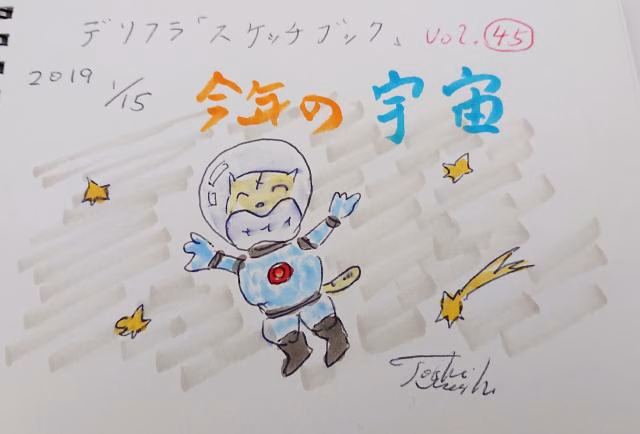 デリフラ「スケッチブック」 vol.45
2019 1/15
今年の宇宙